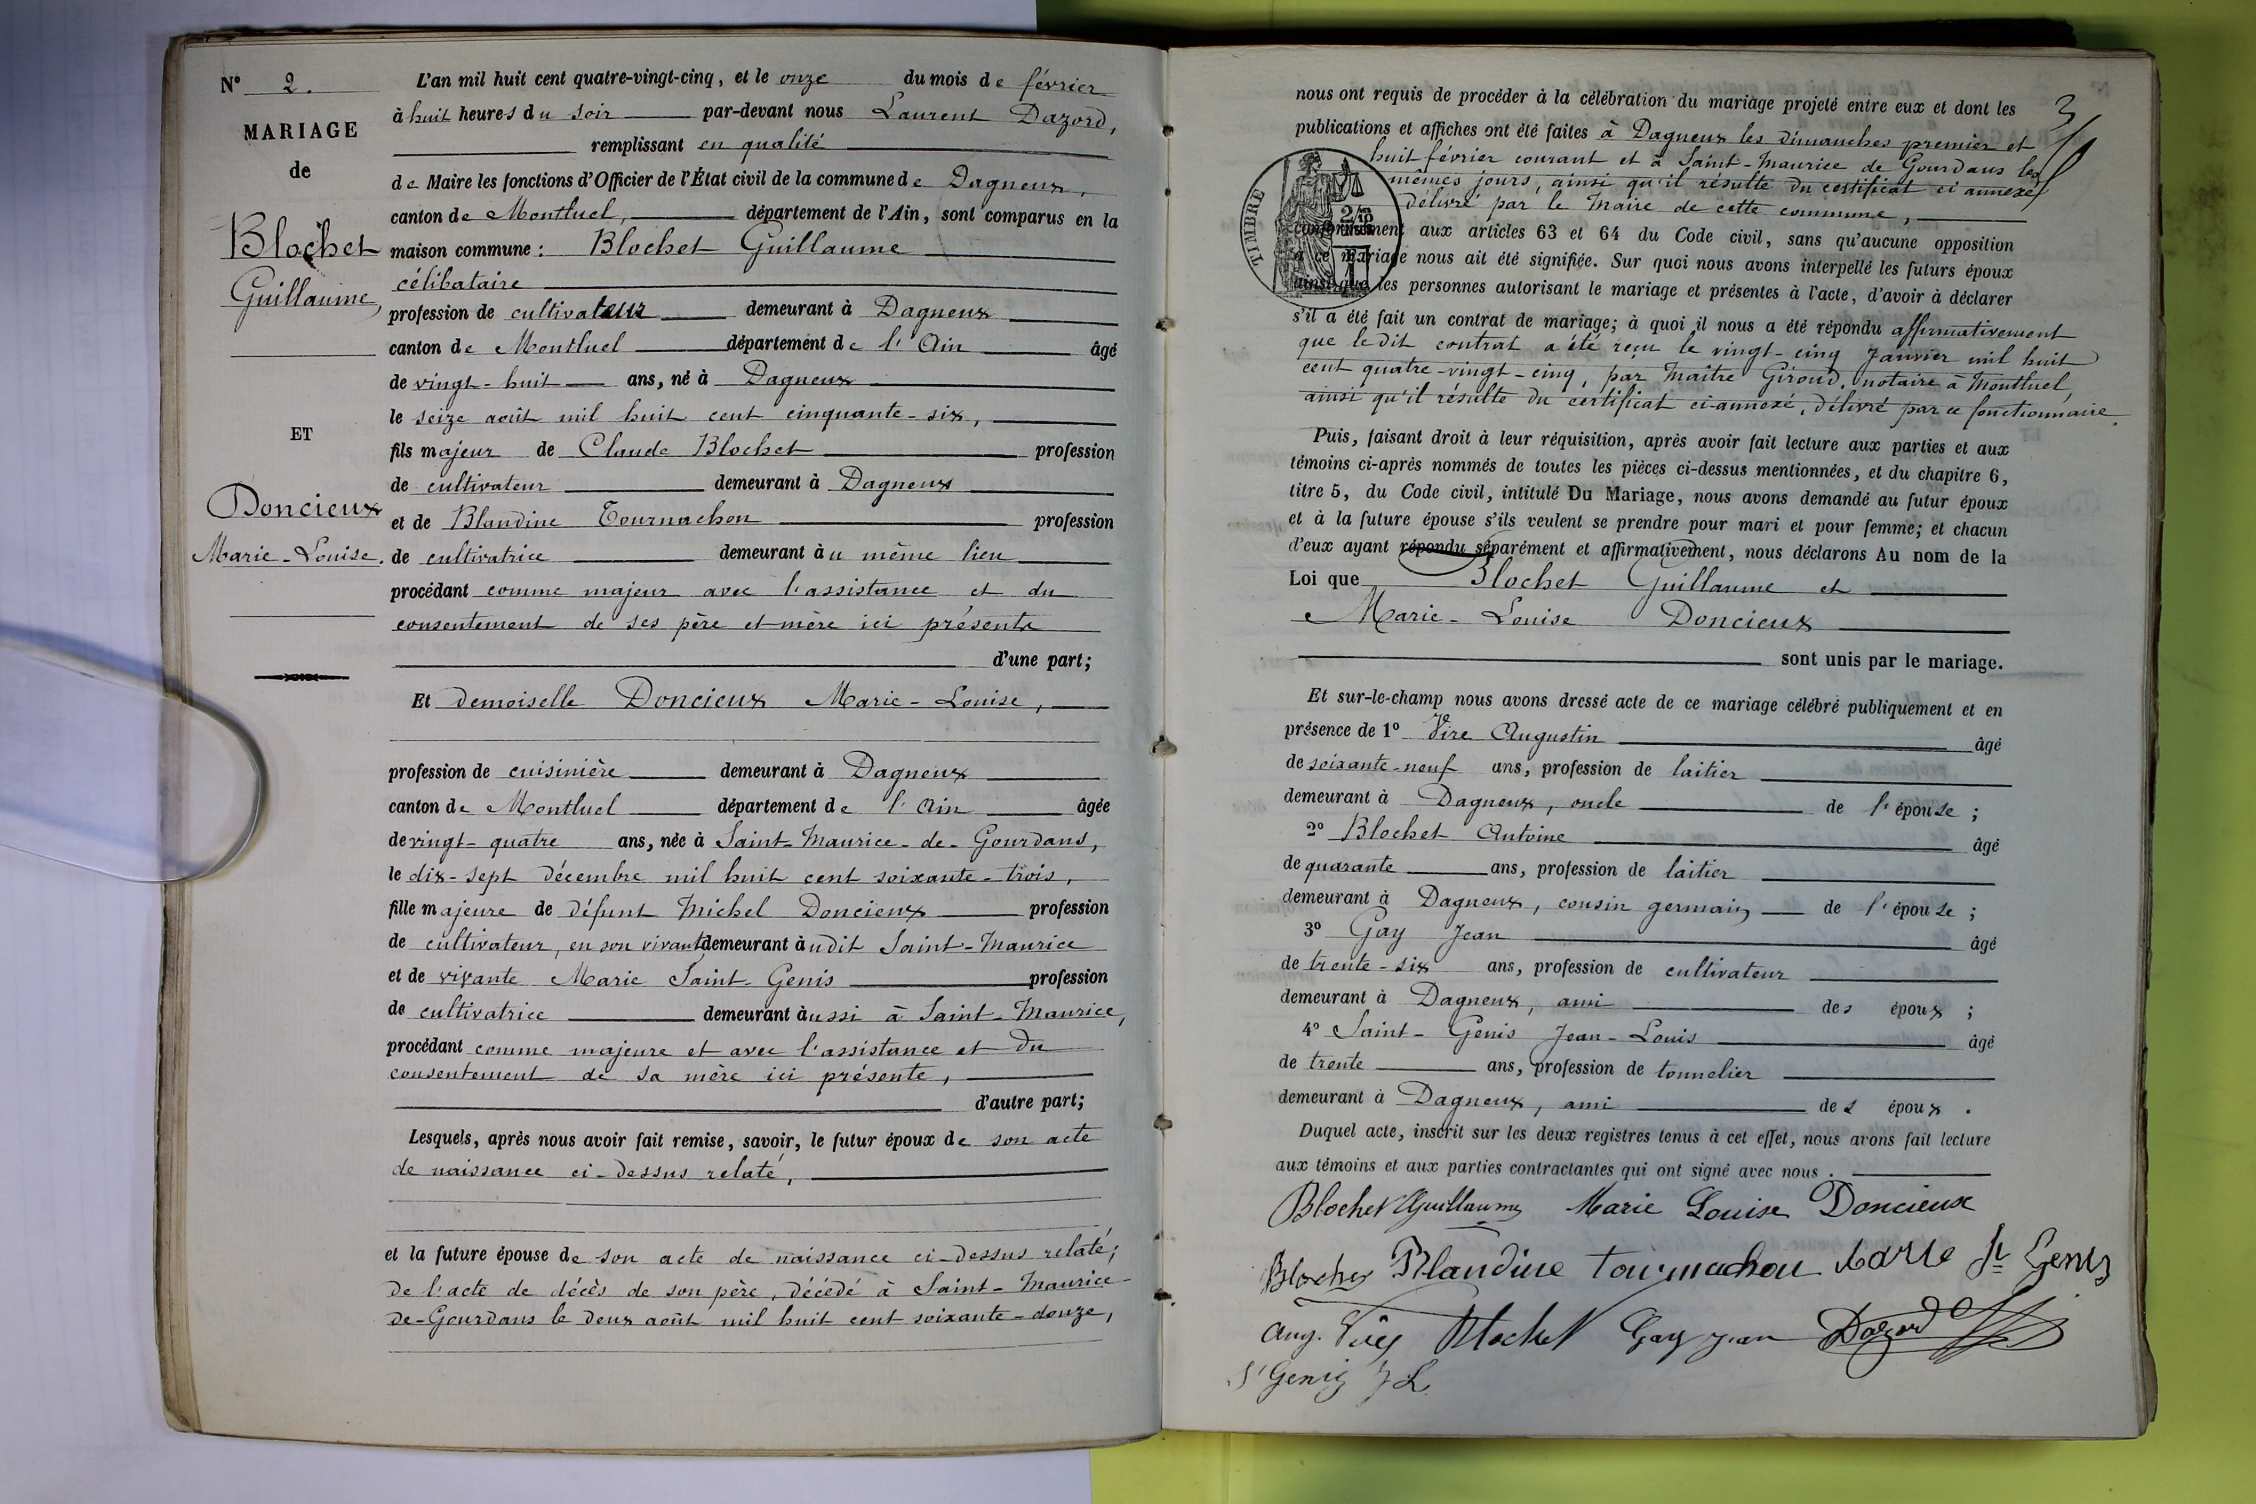 N° 2.
MARIAGE
de
Blochet
Guillaume,
ET
Doncieux
Marie-Louise.
L'an mil huit cent quatre-vingt-cinq, et le onze du mois de février
à huit heures du soir par-devant nous Laurent Dazord,
remplissant en qualité
de Maire les fonctions d'Officier de l'État civil de la commune de Dagneux,
canton de Montluel, département de l'Ain, sont comparus en la
maison commune : Blochet Guillaume
célibataire
profession de cultivateur demeurant à Dagneux
canton de Montluel département de l'Ain âgé
de vingt-huit ans, né à Dagneux
le seize août mil huit cent cinquante-six,
fils majeur de Claude Blochet profession
de cultivateur demeurant à Dagneux
et de Blandine Tournachon profession
de cultivatrice demeurant au même lieu
procédant comme majeur avec l'assistance et du
consentement de ses père et mère ici présents
d'une part;
Et demoiselle Doncieux Marie-Louise,
profession de cuisinière demeurant à Dagneux
canton de Montluel département de l'Ain âgée
de vingt-quatre ans, née à Saint-Maurice-de-Gourdans,
le dix-sept décembre mil huit cent soixante-trois,
fille majeure de défunt Michel Doncieux profession
de cultivateur, en son vivant demeurant audit Saint-Maurice
et de vivante Marie Saint-Genis profession
de cultivatrice demeurant aussi à Saint-Maurice,
procédant comme majeure et avec l'assistance et du
consentement de sa mère ici présente,
d'autre part;
Lesquels, après nous avoir fait remise, savoir, le futur époux de son acte
de naissance ci-dessus relaté,
et la future épouse de son acte de naissance ci-dessus relaté;
de l'acte de décès de son père, décédé à Saint-Maurice-
de-Gourdans le deux août mil huit cent soixante-douze,
3
nous ont requis de procéder à la célébration du mariage projeté entre eux et dont les
publications et affiches ont été faites à Dagneux les dimanches premier et
huit février courant et à Saint-Maurice de Gourdans les
mêmes jours, ainsi qu'il résulte du certificat ci annexé
délivré par le Maire de cette commune,
TIMBRE
conformément aux articles 63 et 64 du Code civil, sans qu'aucune opposition
à ce mariage nous ait été signifiée. Sur quoi nous avons interpellé les futurs époux
ainsi que les personnes autorisant le mariage et présentes à l'acte, d'avoir à déclarer
s'il a été fait un contrat de mariage; à quoi il nous a été répondu affirmativement
que le dit contrat a été reçu le vingt-cinq Janvier mil huit
cent quatre-vingt-cinq, par Maître Giroud, notaire à Montluel,
ainsi qu'il résulte du certificat ci-annexé, délivré par ce fonctionnaire.
Puis, faisant droit à leur réquisition, après avoir fait lecture aux parties et aux
témoins ci-après nommés de toutes les pièces ci-dessus mentionnées, et du chapitre 6,
titre 5, du Code civil, intitulé Du Mariage, nous avons demandé au futur époux
et à la future épouse s'ils veulent se prendre pour mari et pour femme; et chacun
d'eux ayant répondu séparément et affirmativement, nous déclarons Au nom de la
Loi que Blochet Guillaume et
Marie-Louise Doncieux
sont unis par le mariage.
Et sur-le-champ nous avons dressé acte de ce mariage célébré publiquement et en
présence de 1° Vire Augustin âgé
de soixante-neuf ans, profession de laitier
demeurant à Dagneux, oncle de l'épouse ;
2° Blochet Antoine âgé
de quarante ans, profession de laitier
demeurant à Dagneux, cousin germain de l'épouse ;
3° Gay Jean âgé
de trente-six ans, profession de cultivateur
demeurant à Dagneux, ami des époux ;
4° Saint-Genis Jean-Louis âgé
de trente ans, profession de tonnelier
demeurant à Dagneux, ami des époux .
Duquel acte, inscrit sur les deux registres tenus à cet effet, nous avons fait lecture
aux témoins et aux parties contractantes qui ont signé avec nous .
Blochet Guillaume Marie Louise Doncieux
Blochet Blandine tournachon Marie St Genis
Aug. Blochet Gay Jean Dazord
St Genis J L.